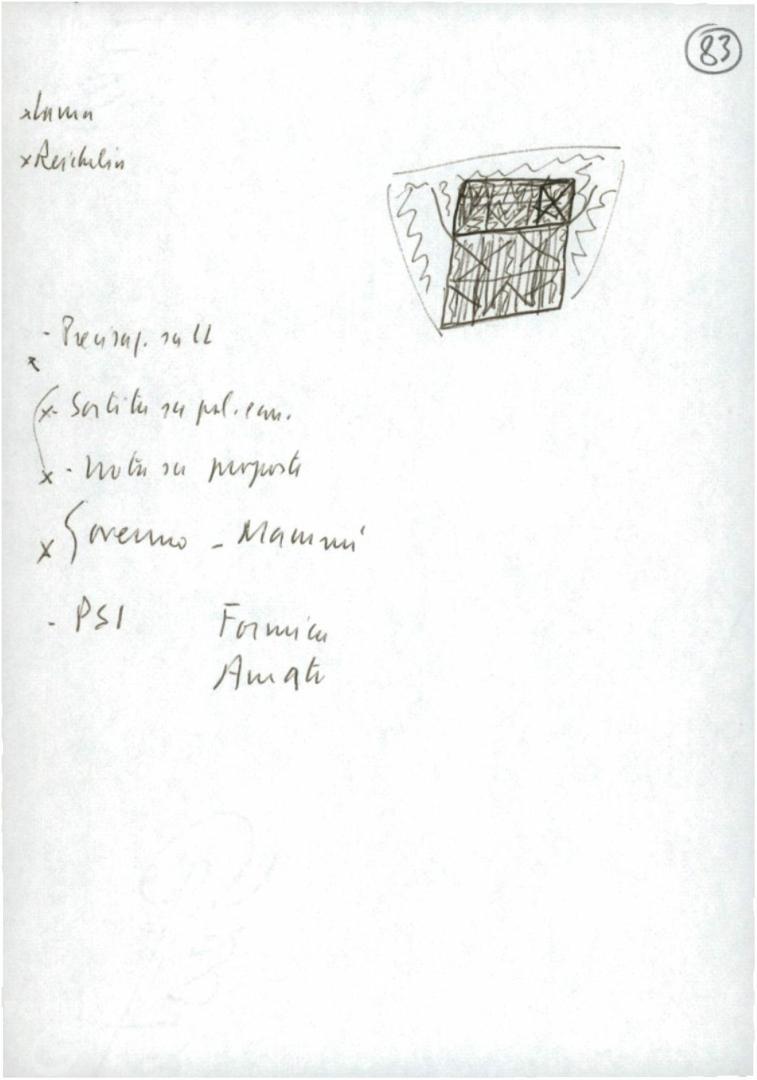 83
x Lama
x Reichlin
- Precisaz. su
x - Sortita su pol. econ.
x - Nota su proposte
x Governo - Mammì
- PSI Formica
Amato